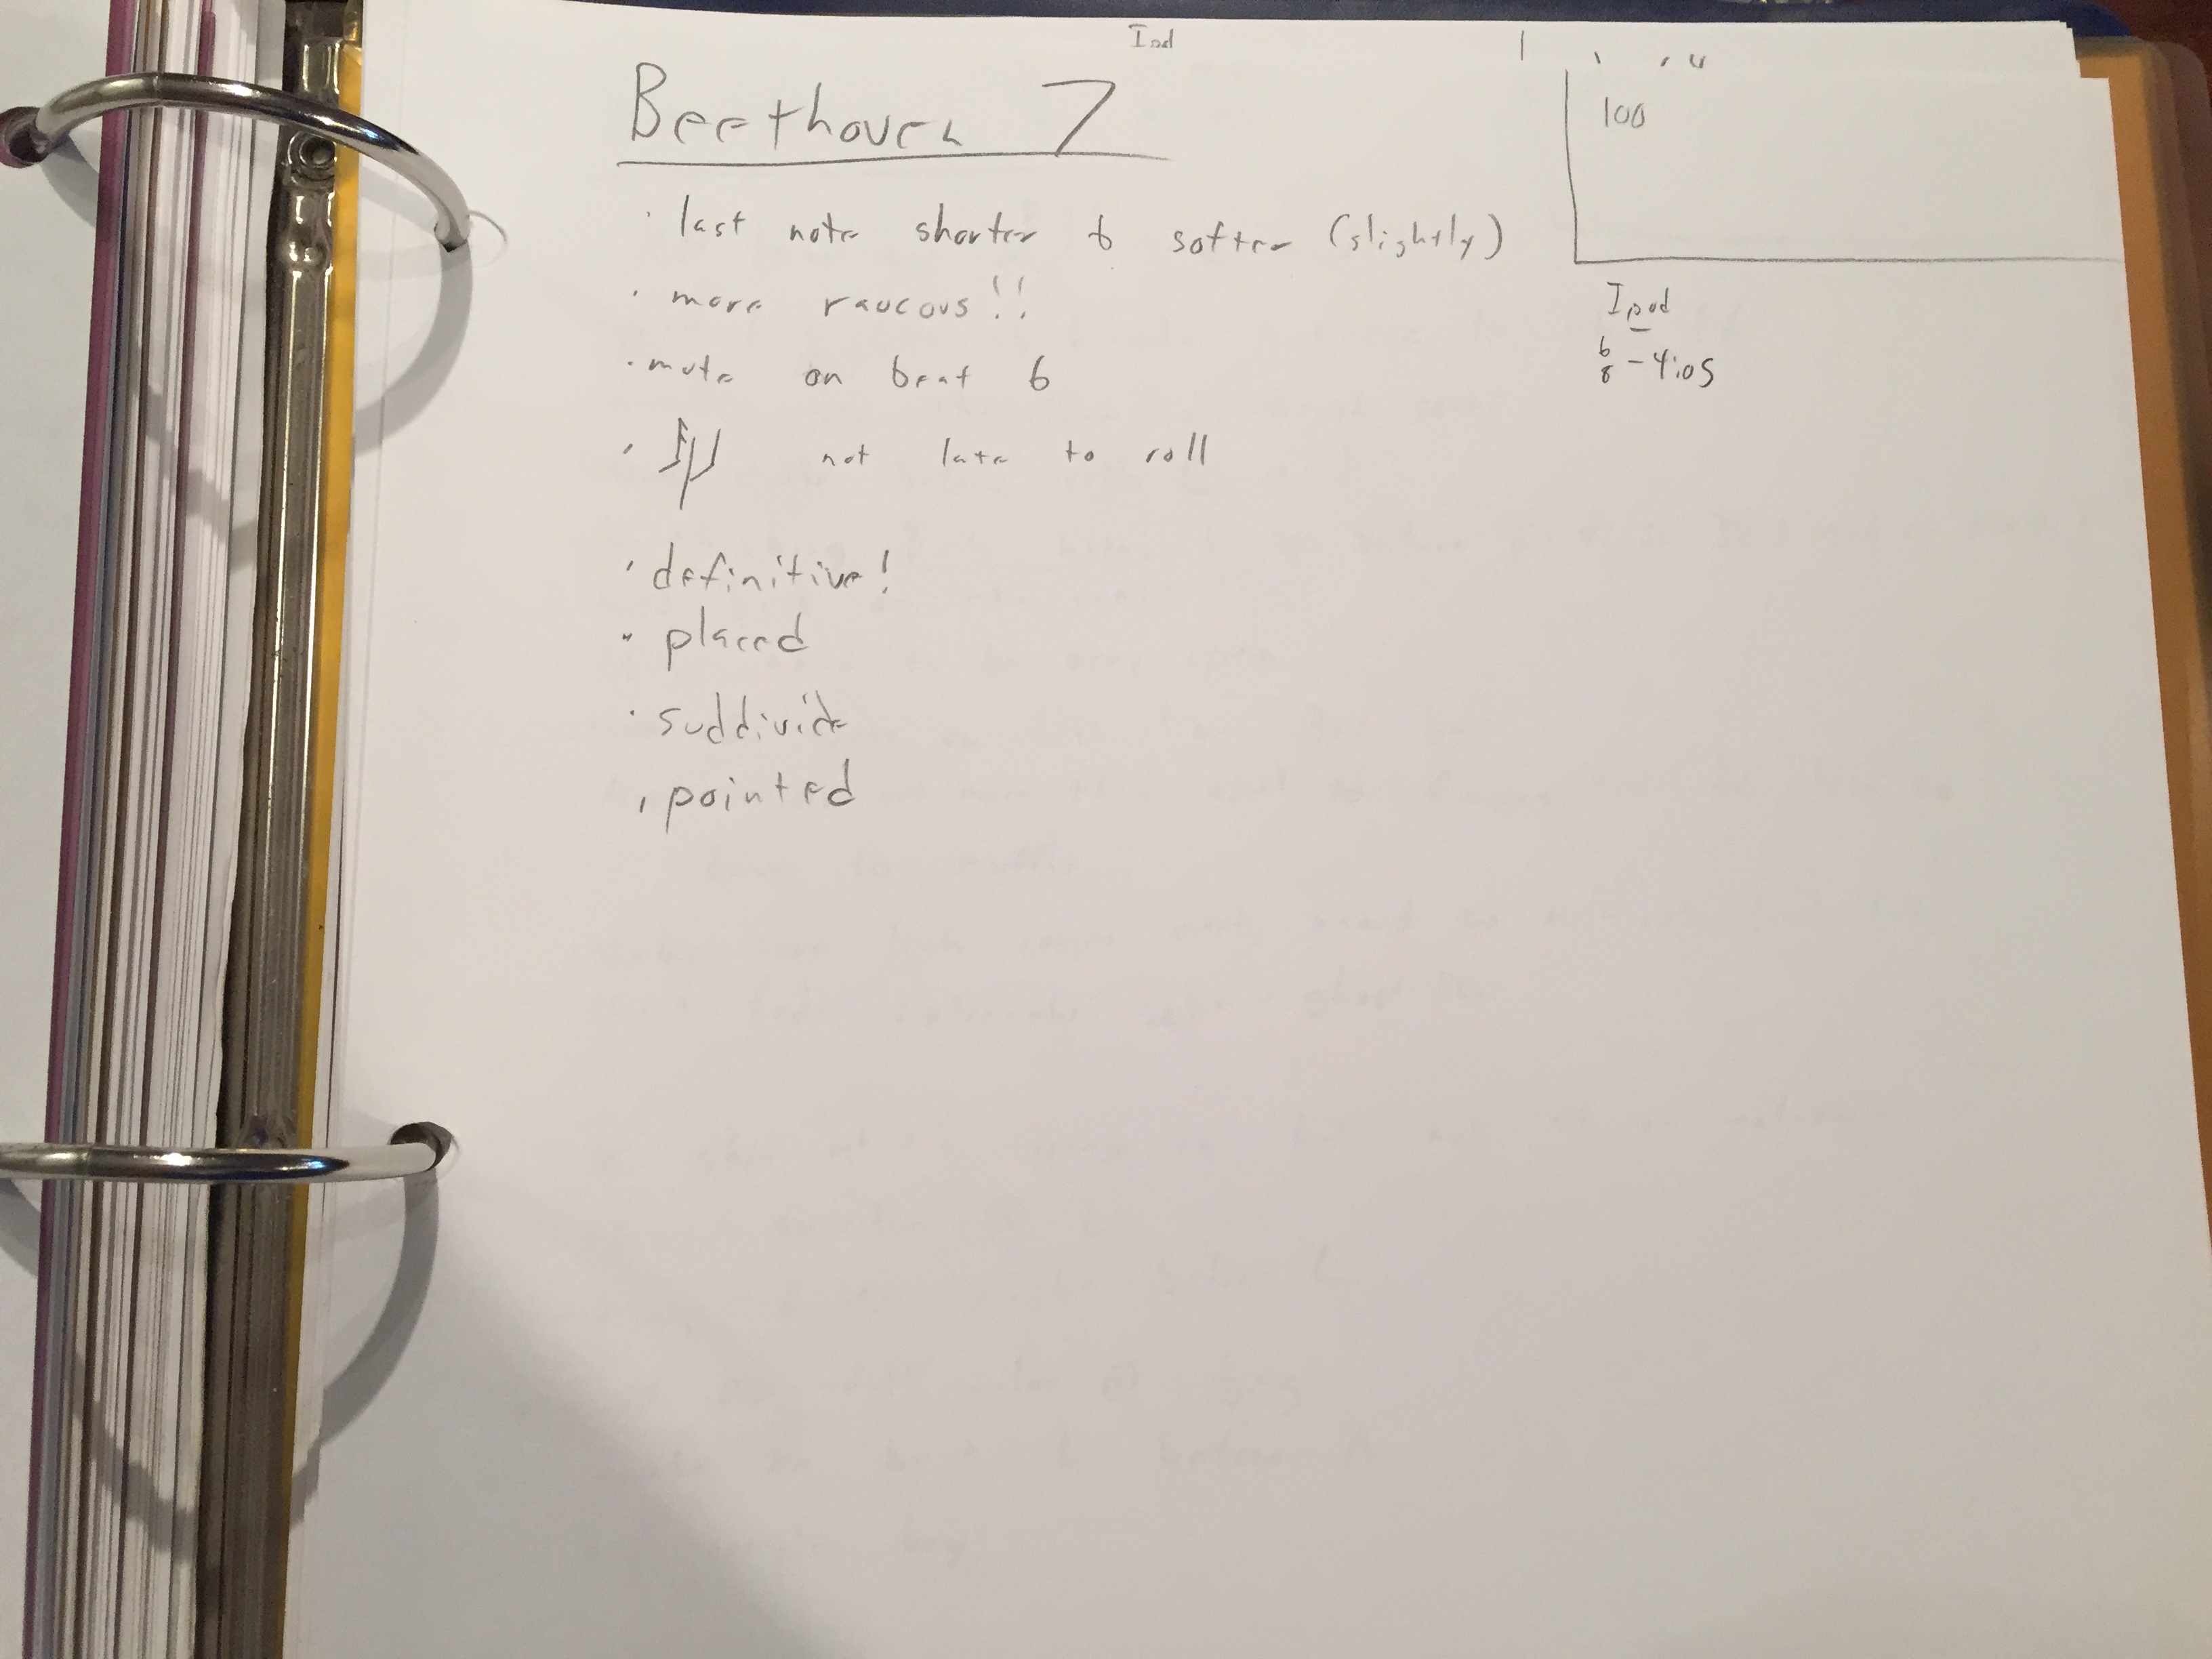 Beethoven 7
· last note shorter & softer (slightly)
· more raucous!!
· mute on beat 6
· not late to roll
· definitive!
· placed
· suddivide
· pointed
100
Ipod